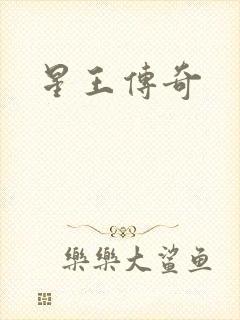 星王傳奇
樂樂大鯊鱼